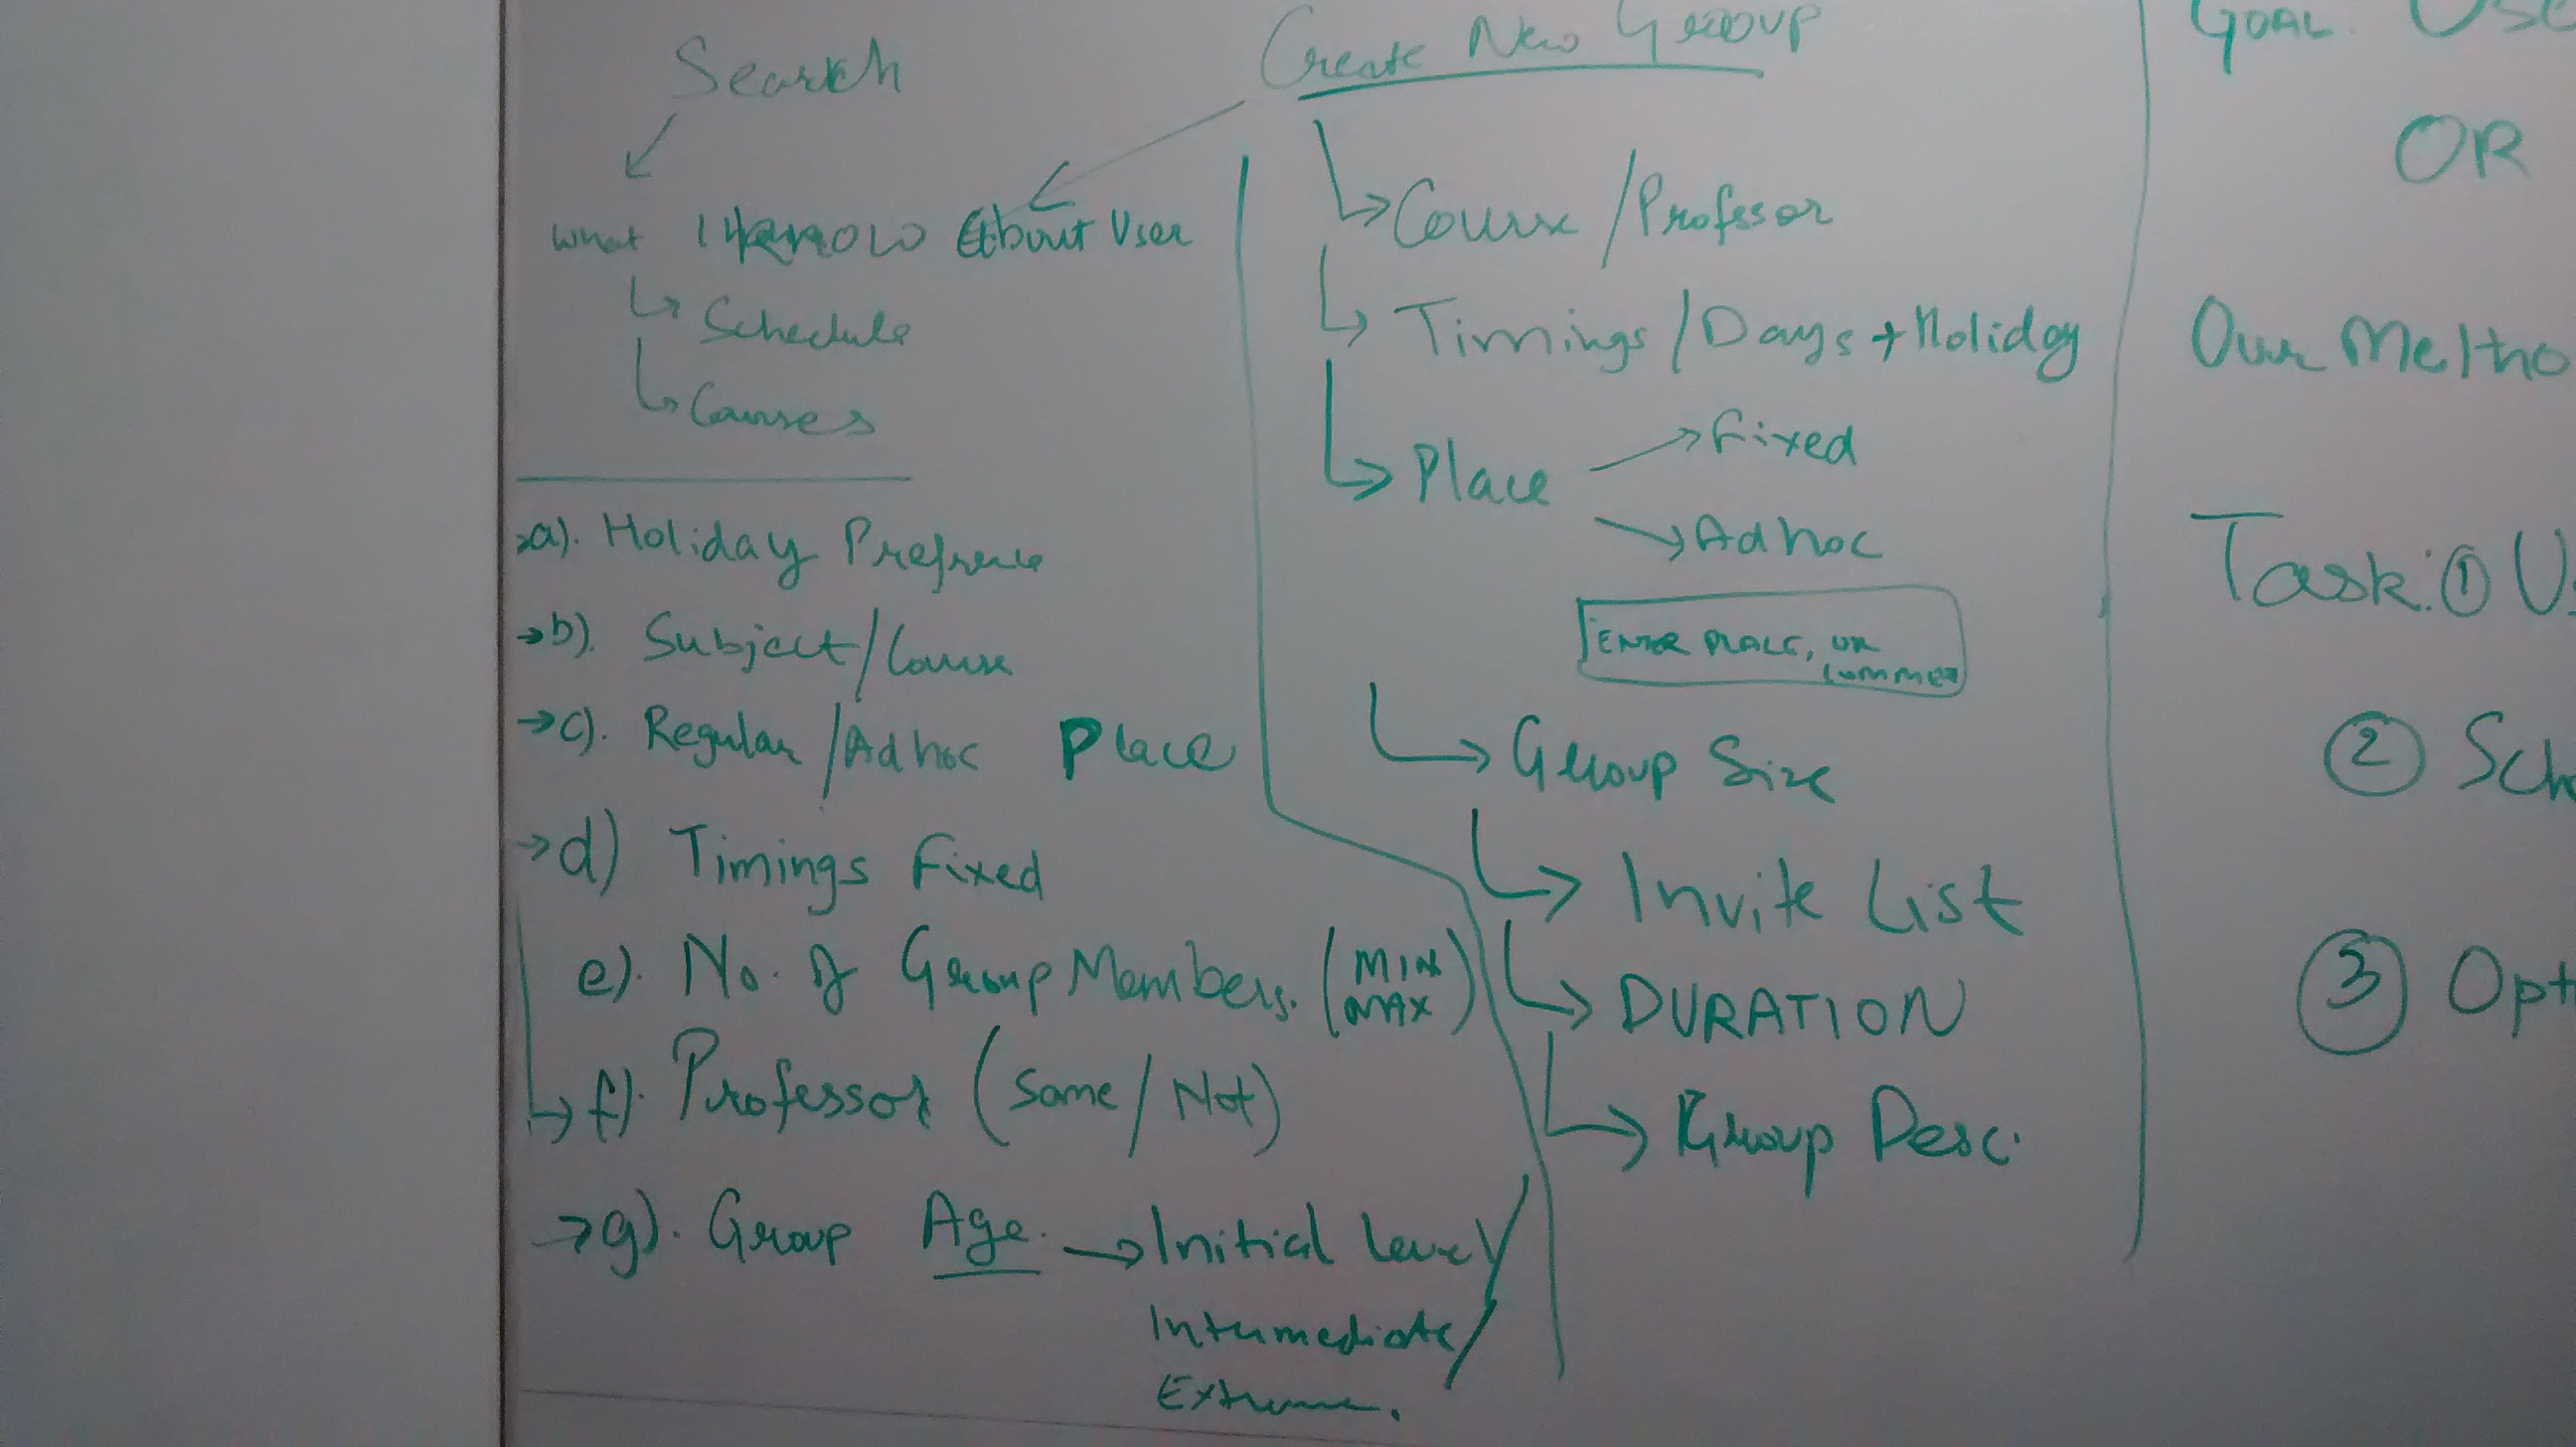 Search
What I Know About User
Schedule
Courses
a). Holiday Prefrence
b). Subject/Course
c). Regular/Adhoc Place
d) Timings Fixed
e). No. of Group Members. (MIN MAX)
f). Professor (Same/Not)
g). Group Age. → Initial Level/
Intermediate/
Extreme.
Create New Group
Course/Professor
Timings/Days + Holiday
Place
Fixed
Adhoc
ENTER PLACE, OR
COMMEN
Group Size
Invite List
DURATION
Group Desc.
GOAL. USE
OR
Our Metho
Task: ① U
② Sch
③ Opt